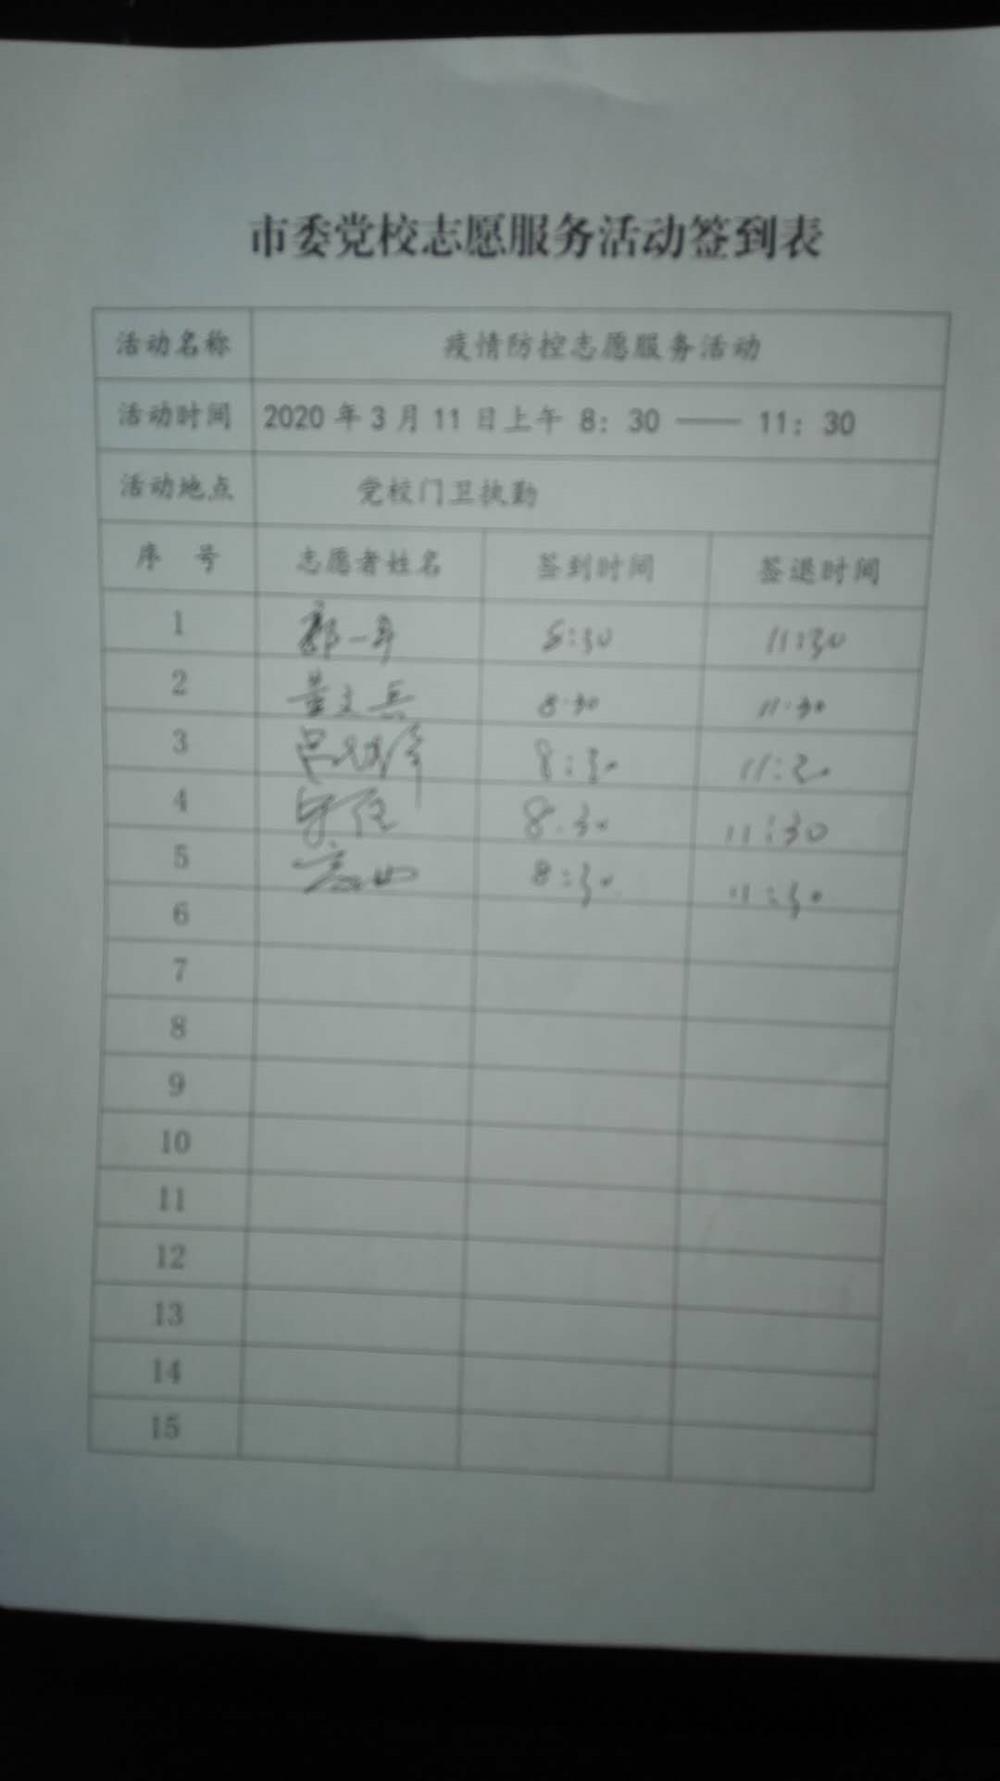 市委党校志愿服务活动签到表
活动名称 疫情防控志愿服务活动
活动时间 2020 年 3 月 11 日上午 8：30 —— 11：30
活动地点 党校门卫执勤
序 号 志愿者姓名 签到时间 签退时间
1 8:30 11:30
2 董文兵 8:30 11:30
3 8:30 11:30
4 8:30 11:30
5 8:30 11:30
6
7
8
9
10
11
12
13
14
15